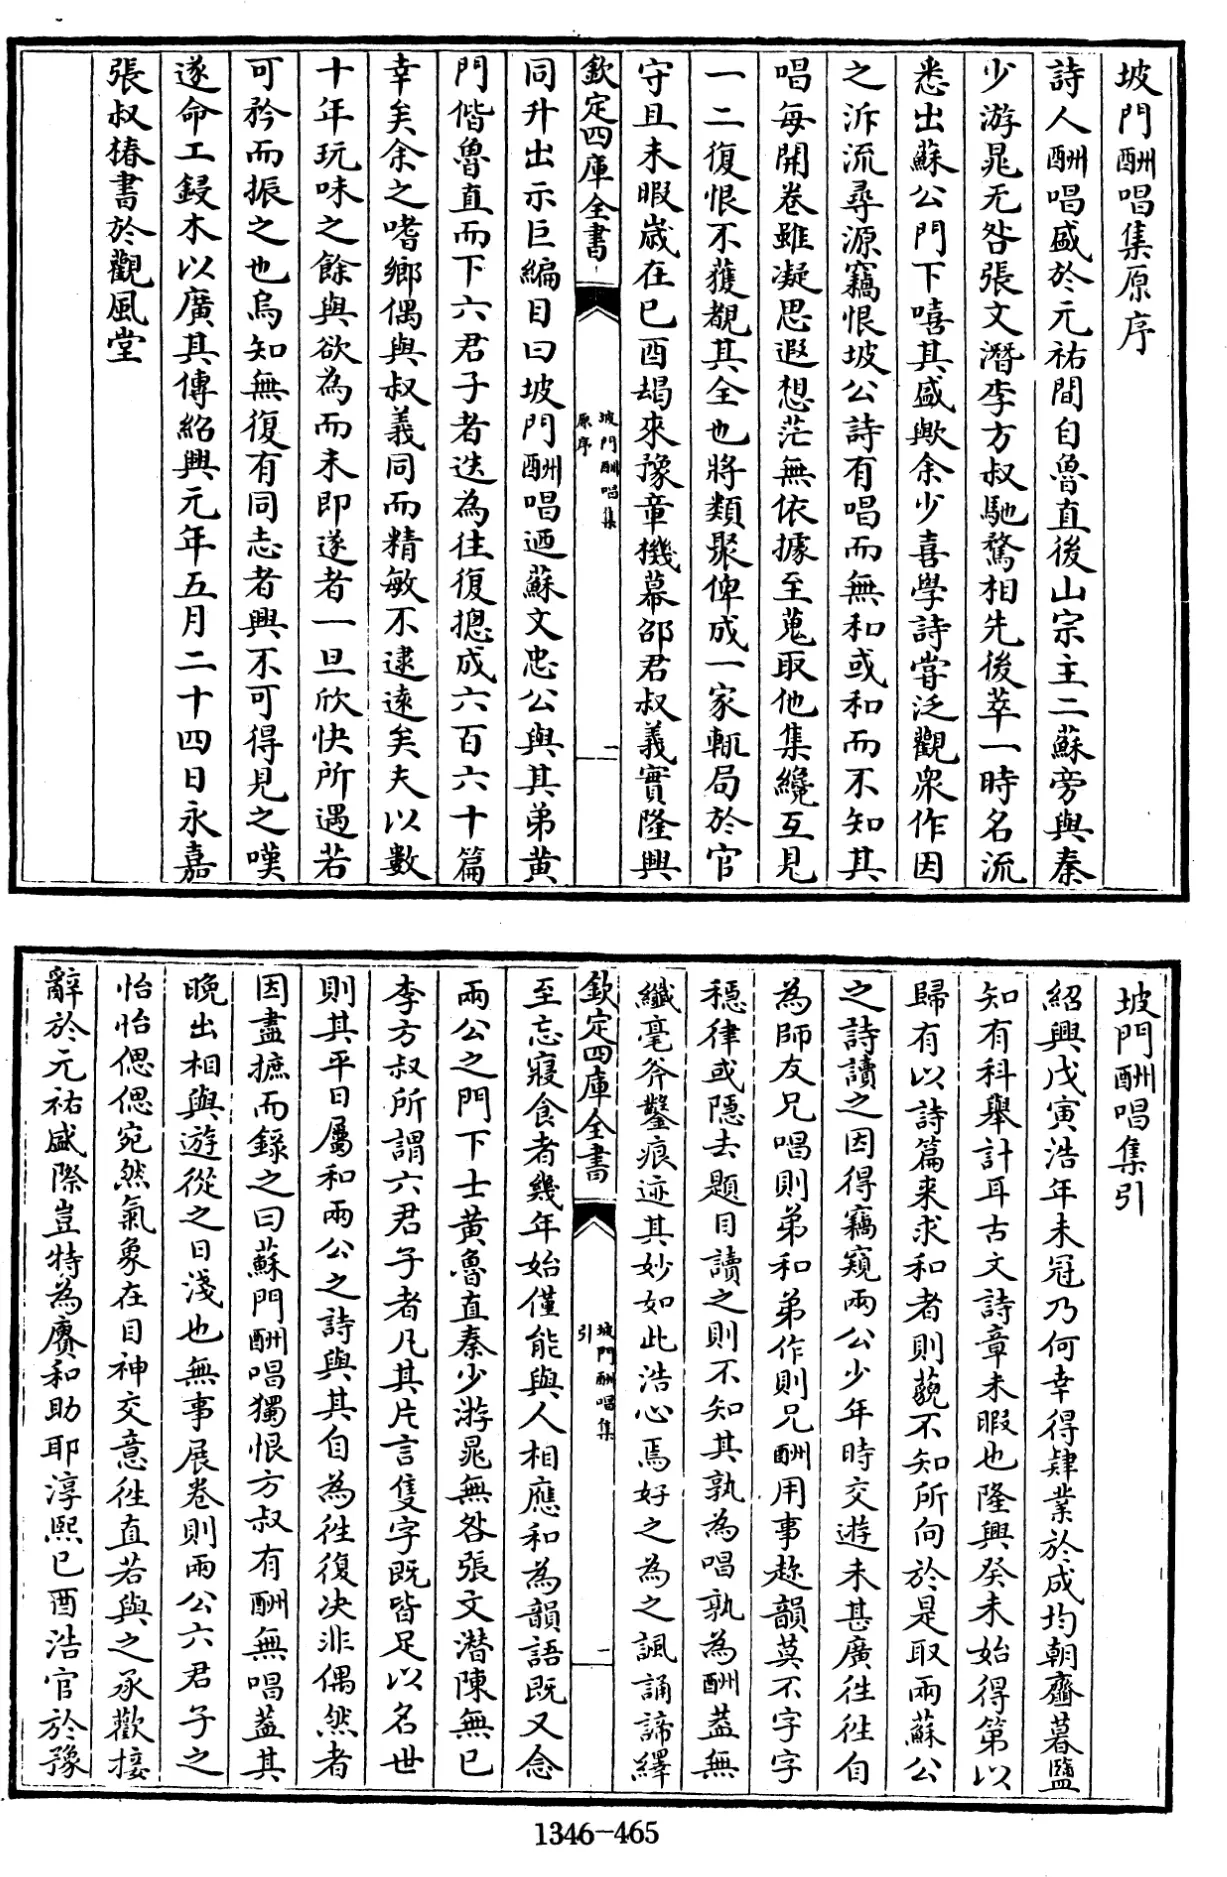 坡門酬唱集原序
詩人酬唱盛於元祐間自魯直後山宗主二蘇旁與秦
少游晁无咎張文潛李方叔馳騖相先後萃一時名流
悉出蘇公門下嘻其盛歟余少喜學詩嘗泛觀衆作因
之泝流尋源竊恨坡公詩有唱而無和或和而不知其
唱每開卷雖凝思遐想茫無依據至蒐取他集纔互見
一二復恨不獲覩其全也將類聚俾成一家輒局於官
守且未暇歲在己酉朅來豫章機幕邵君叔義實隆興
欽定四庫全書
坡門酬唱集
原序
二
同升出示巨編目曰坡門酬唱迺蘇文忠公與其弟黃
門偕魯直而下六君子者迭為往復摠成六百六十篇
幸矣余之嗜鄉偶與叔義同而精敏不逮遠矣夫以數
十年玩味之餘與欲為而未即遂者一旦欣快所遇若
可矜而振之也烏知無復有同志者興不可得見之嘆
遂命工鋟木以廣其傳紹興元年五月二十四日永嘉
張叔椿書於觀風堂
坡門酬唱集引
紹興戊寅浩年未冠乃何幸得肄業於成均朝虀暮鹽
知有科舉計耳古文詩章未暇也隆興癸未始得第以
歸有以詩篇来求和者則藐不知所向於是取兩蘇公
之詩讀之因得竊窺兩公少年時交遊未甚廣往往自
為師友兄唱則弟和弟作則兄酬用事趁韻莫不字字
穩律或隱去題目讀之則不知其孰為唱孰為酬蓋無
纖毫斧鑿痕迹其妙如此浩心焉好之為之諷誦諦繹
欽定四庫全書
坡門酬唱集
引
一
至忘寢食者幾年始僅能與人相應和為韻語既又念
兩公之門下士黃魯直秦少游晁無咎張文潛陳無已
李方叔所謂六君子者凡其片言隻字既皆足以名世
則其平日屬和兩公之詩與其自為往復决非偶然者
因盡摭而錄之曰蘇門酬唱獨恨方叔有酬無唱蓋其
晚出相與遊從之日淺也無事展卷則兩公六君子之
怡怡偲偲宛然氣象在目神交意往直若與之承歡接
辭於元祐盛際豈特為賡和助耶淳熙已酉浩官於豫
1346-465